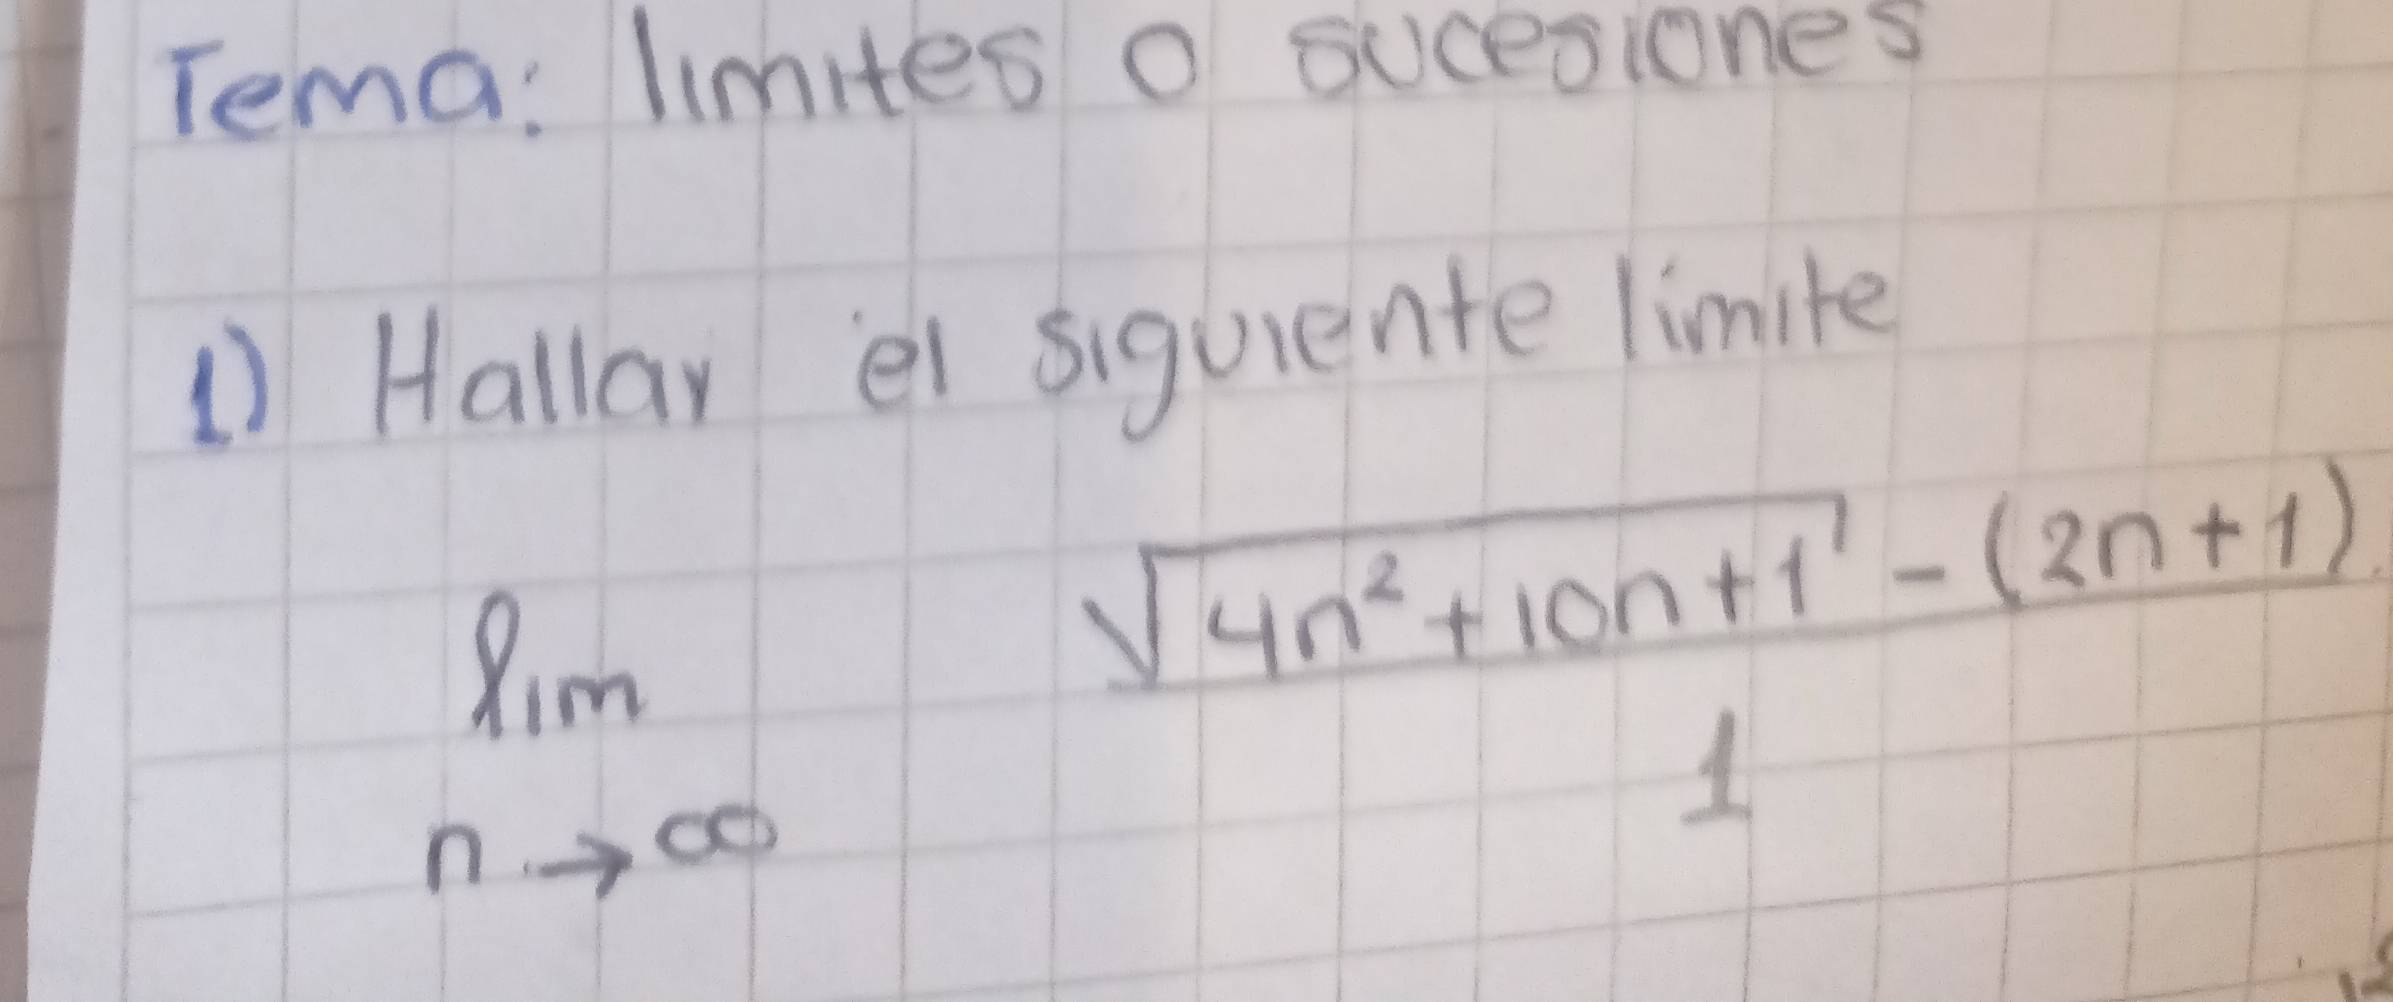 Tema: límites o sucesiones
1) Hallar el siguiente límite
lim √4n²+10n+1 - (2n+1)
n→∞ 1